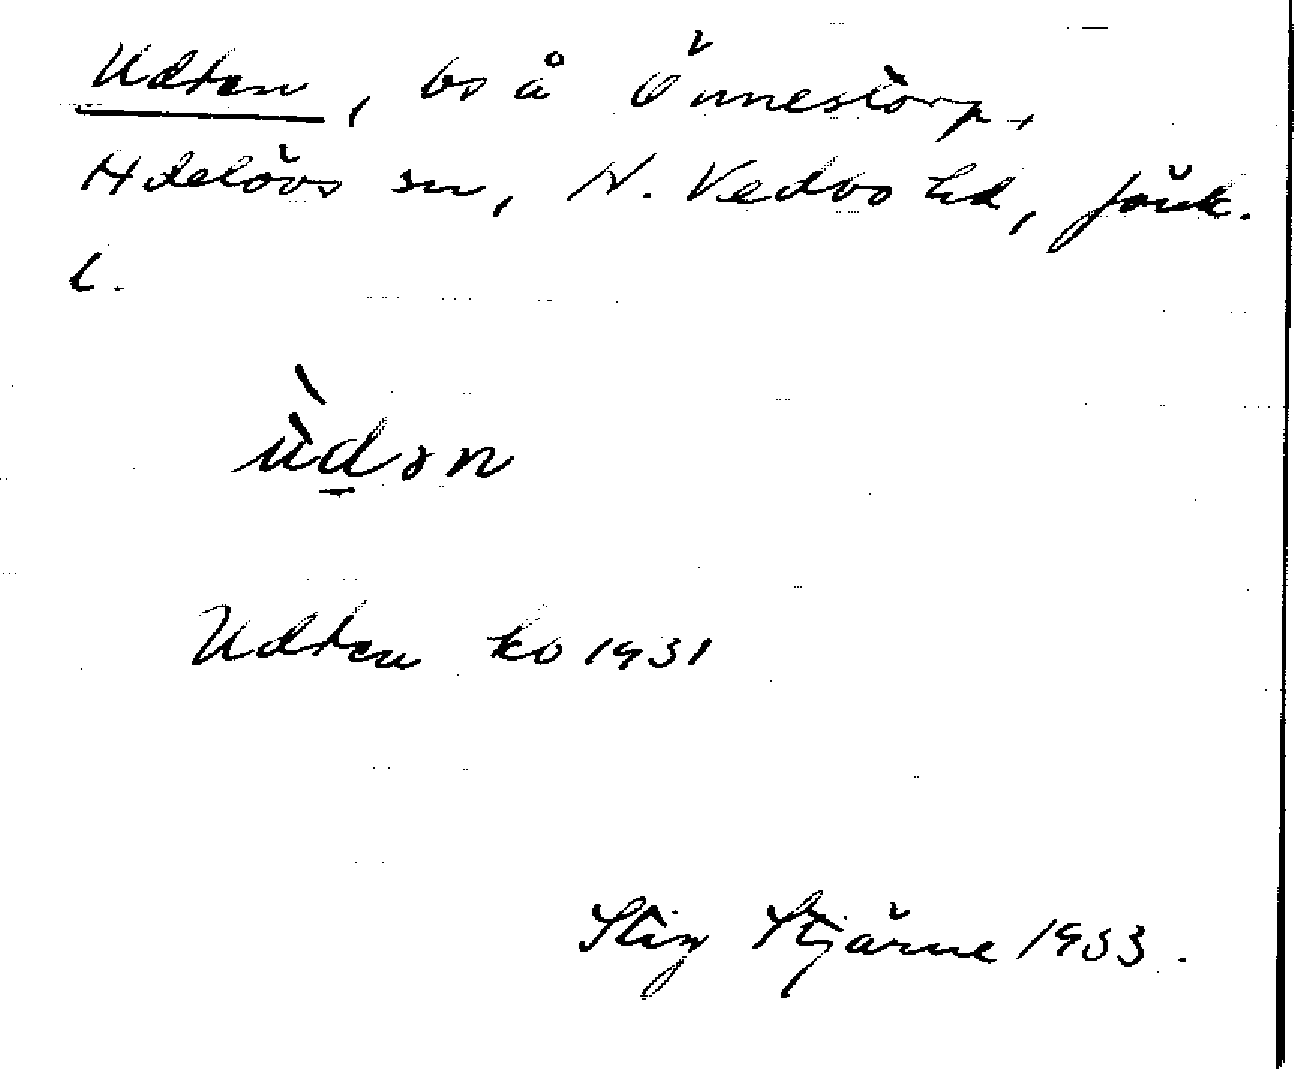 Udden, bs å Önnestorp,
Adelövs sn, N. Vedbo hd, Jönk.
l.
ùd̲ən
Udden ko 1931
Stig Stjärne 1933.